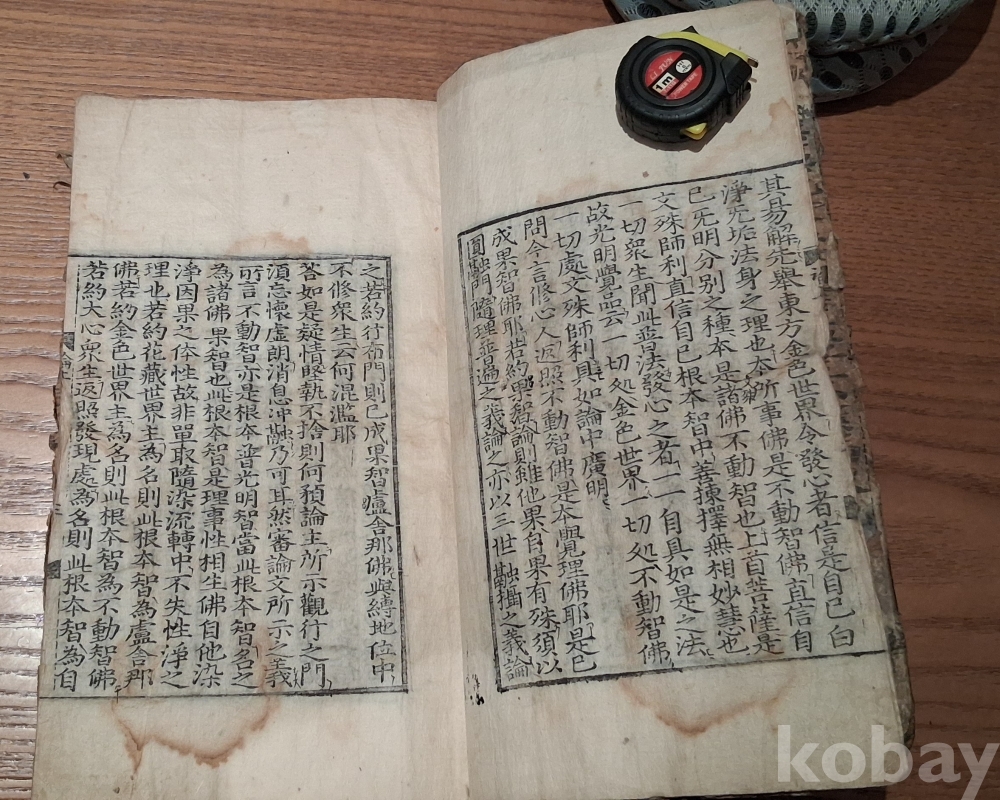 其易解先舉東方金色世界令發心者信是自已白
淨无垢法身之理也本所事佛是不動智佛直信自
已无明分別之種本是諸佛不動智也上首菩薩是
文殊師利直信自已根本智中善揀擇無相妙慧也
一切衆生聞此普法發心之者一一自具如是之法
故光明覺品云一切処金色世界一切処不動智佛
一切處文殊師利具如論中廣明
問今言修心人返照不動智佛是本覺理佛耶是已
成果智佛耶若約果智論則雖他果自果有殊須以
圓融門隨理普遍之義論之亦以三世融攝之義論
之若約行布門則已成果智盧舍那佛與縛地位中
不修衆生云何混濫耶
荅如是疑情堅執不捨則何預論主所示觀行之門
須忘懷虛朗消息冲融乃可耳然審論文所示之義
所言不動智亦是根本普光明智當此根本智名之
為諸佛果智也此根本智是理事性相生佛自他染
淨因果之体性故非單取隨染流轉中不失性淨之
理也若約花藏世界主為名則此根本智為盧舍那
佛若約金色世界主為名則此根本智為不動智佛
若約大心衆生返照發現處為名則此根本智為自
1m
kobay